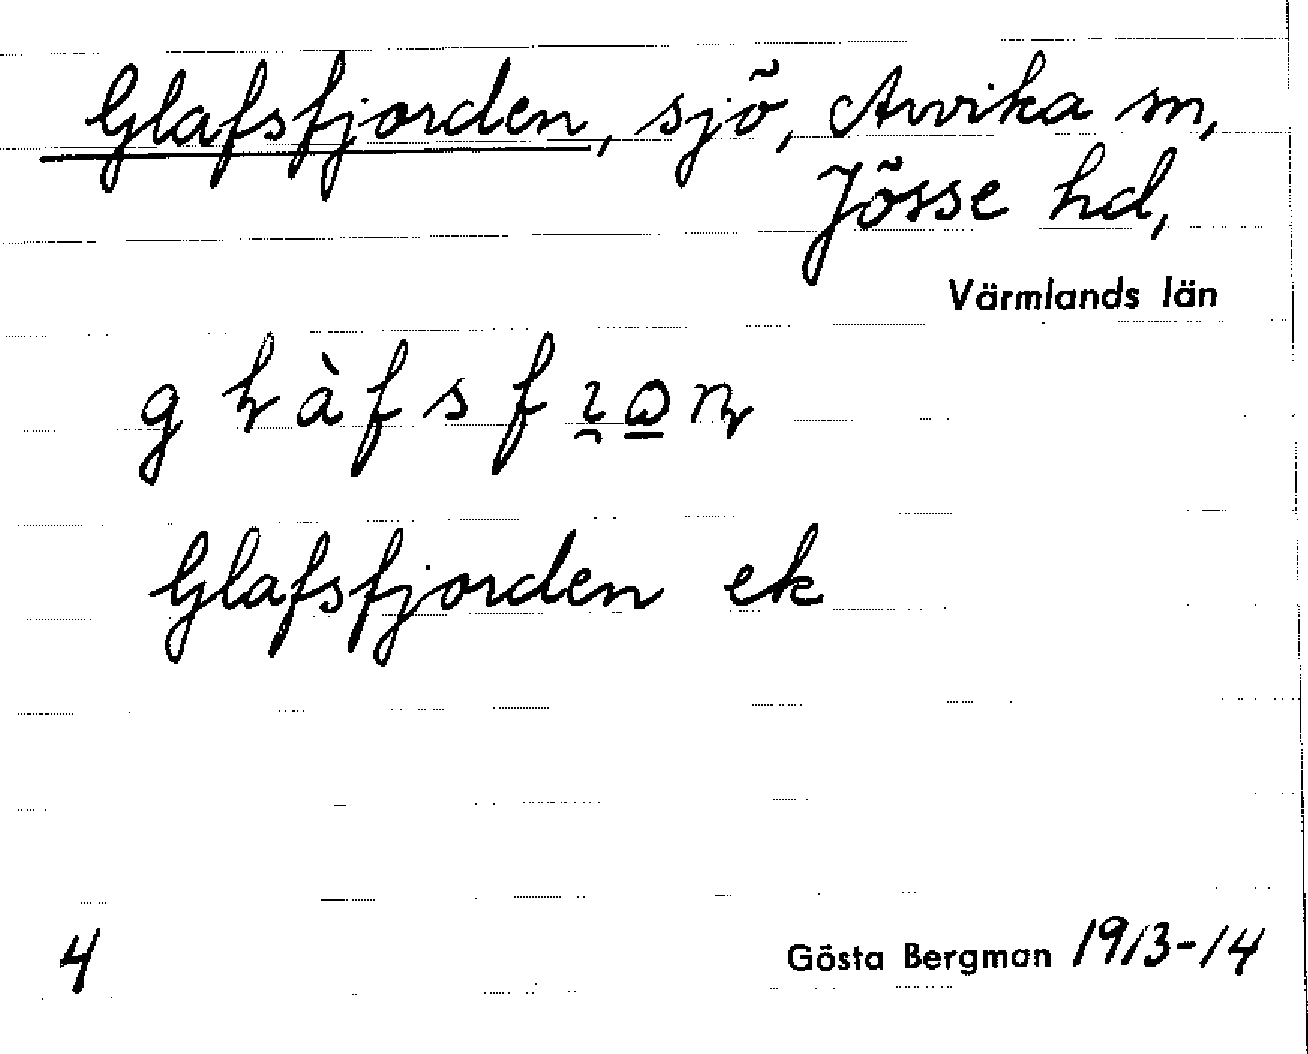 Glafsfjorden, sjö, Arvika sn,
Jösse hd,
Värmlands län
Glafsfjorden ek
4 Gösta Bergman 1913-14